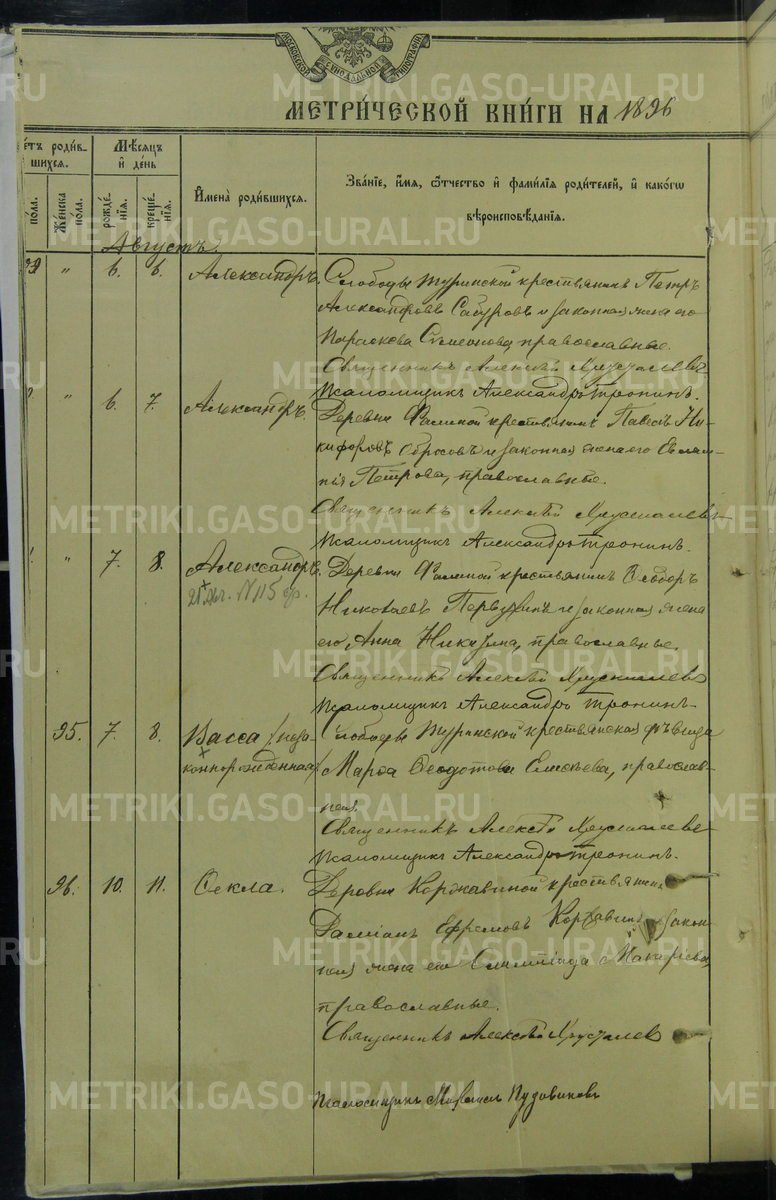 МОСКОВСКОЙ СУНОДАЛЬНОЙ ТИПОГРАФІИ
МЕТРИ́ЧЕСКОЙ КНИ́ГИ НА 1896
е́тъ роди́в-
шихся.
по́ла.
Же́нска по́ла.
Мѣ́сяцъ и҆ де́нь
рожде́нїя.
креще́нїя.
И҆мена̀ роди́вшихся.
Зва́нїе, и҆́мя, ѻ҆́тчество и҆ фамѝлїя роди́телей, и҆ како́гѡ
вѣроисповѣ́данїя.
Августъ.
" 6. 6. Александръ. Слободы Туринской крестьянинъ Петръ
Александровъ Сабуровъ и законная жена его
Параскева Симеонова, православные.
Священникъ Алексѣй Хрусталевъ
Псаломщикъ Александръ Тронинъ.
" 6. 7. Александръ. Деревни Фалиной крестьянинъ Павелъ Ни-
кифоровъ Обросовъ и законная жена его Евлам-
пія Петрова, православные.
Священникъ Алексѣй Хрусталевъ
Псаломщикъ Александръ Тронинъ.
" 7. 8. Александръ. Деревни Фалиной крестьянинъ Ѳеодоръ
21 N 115
Николаевъ Первухинъ и законная жена
его Анна Никитина, православные.
Священникъ Алексѣй Хрусталевъ
Псаломщикъ Александръ Тронинъ
95. 7. 8. Васса /неза- Слободы Туринской крестьянская дѣвица
коннорожденная/ Марѳа Ѳеодотова Елисѣева, православ-
ная.
Священникъ Алексѣй Хрусталевъ
Псаломщикъ Александръ Тронинъ.
96. 10. 11. Ѳекла. Деревни Коржавиной крестьянинъ
Даміанъ Ефремовъ Коржавинъ и закон-
ная жена его Олимпіада Макаріева,
православные.
Священникъ Алексѣй Хрусталевъ
Псаломщикъ Михаилъ Пудовиковъ
METRIKI.GASO-URAL.RU